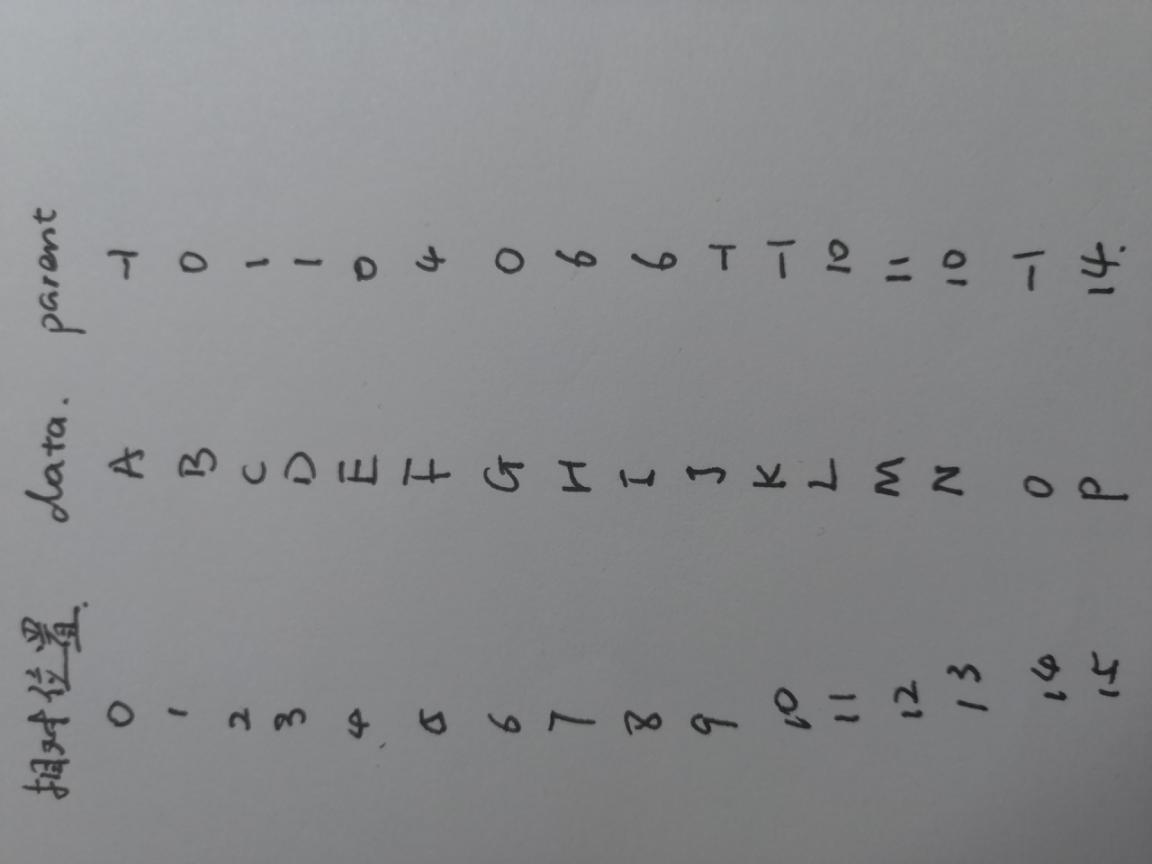 相对位置. data. parent
0 A -1
1 B 0
2 C 1
3 D 1
4 E 0
5 F 4
6 G 0
7 H 6
8 I 6
9 J -1
10 K -1
11 L 10
12 M 11
13 N 10
14 O -1
15 P 14.